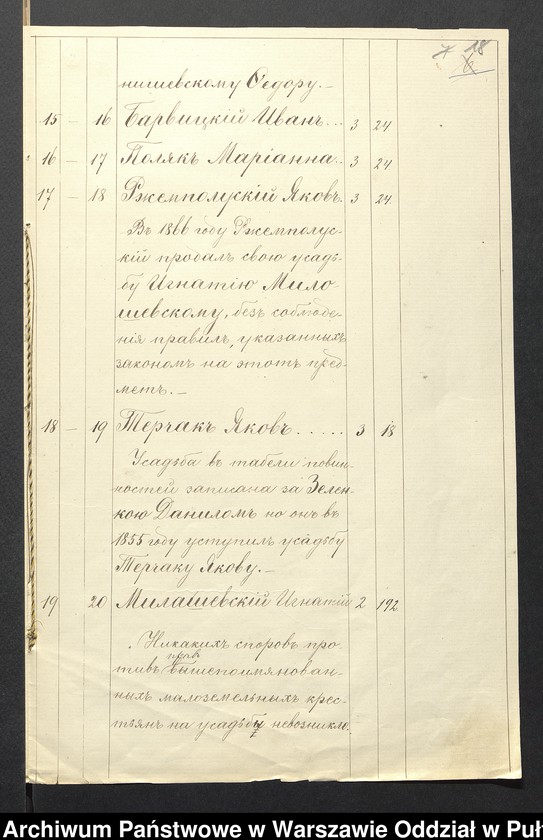 18
нишевскому Ѳедору. —
15 — 16 Барвицкій Иванъ... 3 24
16 — 17 Полякъ Маріанна.. 3 24
17 — 18 Ржемполускій Яковъ. 3 24
Въ 1866 году Ржемполус-
кій продалъ свою усадь-
бу Игнатію Мило-
шевскому, безъ соблюде-
нія правилъ, указанныхъ
закономъ на этотъ пред-
метъ. —
18 — 19 Терчакъ Яковъ..... 3 18
Усадьба въ табели повин-
ностей записана за Зелен-
кою Даниломъ но онъ въ
1855 году уступилъ усадьбу
Терчаку Якову. —
19 20 Милашевскій Игнатій 2 192
Никакихъ споровъ про-
тивъ правъ вышепоимянован-
ныхъ малоземельныхъ крес-
тьянъ на усадьбы невозникло.
Archiwum Państwowe w Warszawie Oddział w Puł